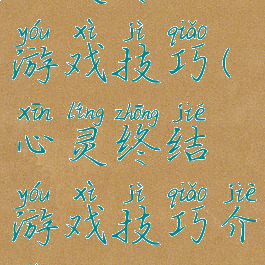 yóu xì jì qiǎo
游戏技巧(
xīn líng zhōng jié
心灵终结
yóu xì jì qiǎo jiè
游戏技巧介